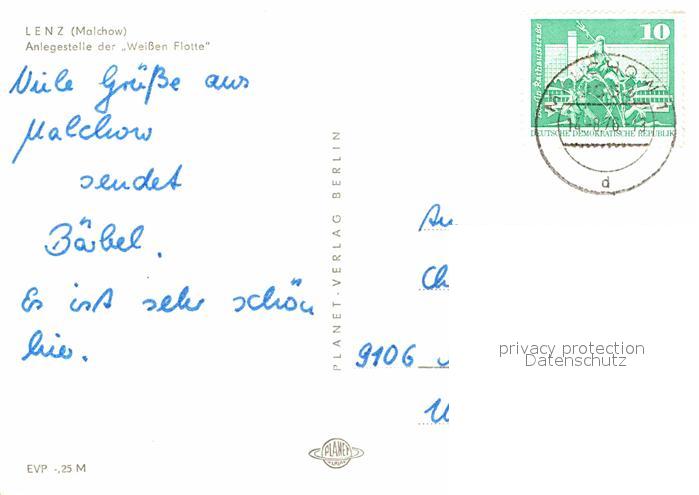 LENZ (Malchow)
Anlegestelle der „Weißen Flotte"
Viele Grüße aus
Malchow
sendet
Bärbel.
Es ist sehr schön
hier.
EVP -,25 M
PLANET-VERLAG BERLIN
PLANET
VERLAG
10
An der Rathausstraße
DEUTSCHE DEMOKRATISCHE REPUBLIK
d
An
Ch
9106
privacy protection
Datenschutz